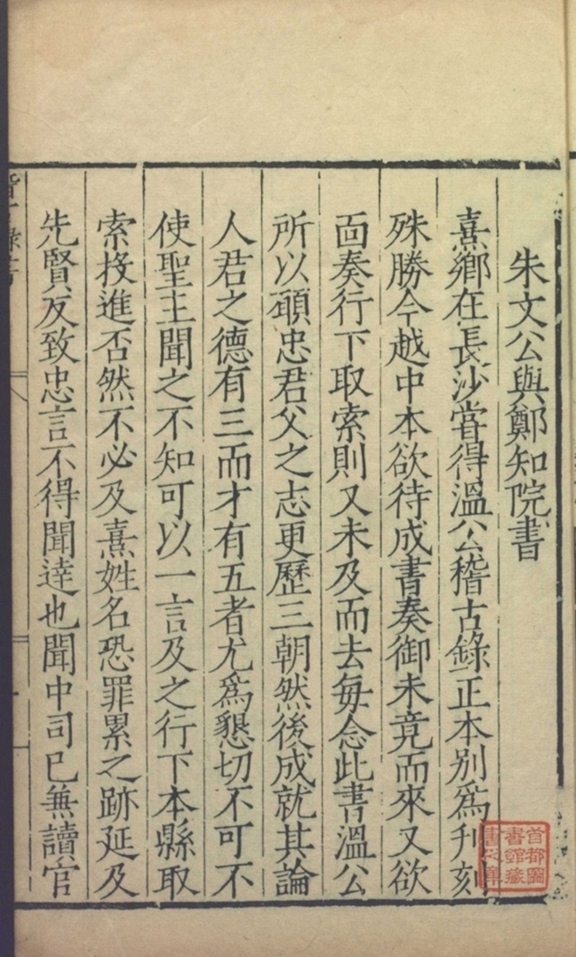 朱文公與鄭知院書
熹鄉在長沙嘗得溫公稽古錄正本别爲刋刻
殊勝今越中本欲待成書奏御未竟而來又欲
面奏行下取索則又未及而去每念此書溫公
所以願忠君父之志更歷三朝然後成就其論
人君之德有三而才有五者尤爲懇切不可不
使聖主聞之不知可以一言及之行下本縣取
索投進否然不必及熹姓名恐罪累之跡延及
先賢反致忠言不得聞達也聞中司已無讀官
首都圖
書館藏
書之章